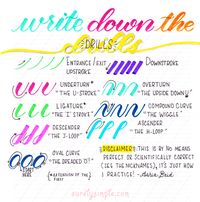 write down the
DRILLS
ENTRANCE/EXIT UPSTROKE
DOWNSTROKE
UNDERTURN *
"THE U-STROKE"
OVERTURN
"THE UPSIDE DOWN U"
LIGATURE *
"THE 'I' STROKE"
COMPOUND CURVE *
"THE WIGGLE"
DESCENDER
"THE J-LOOP"
ASCENDER
"THE H-LOOP"
OVAL CURVE
OR THE DREADED O!
START HERE
DISCLAIMER! THIS IS BY NO MEANS
PERFECT OR SCIENTIFICALLY CORRECT
(SEE THE NICKNAMES), IT'S JUST
HOW I REMEMBER!
surelysimple.com